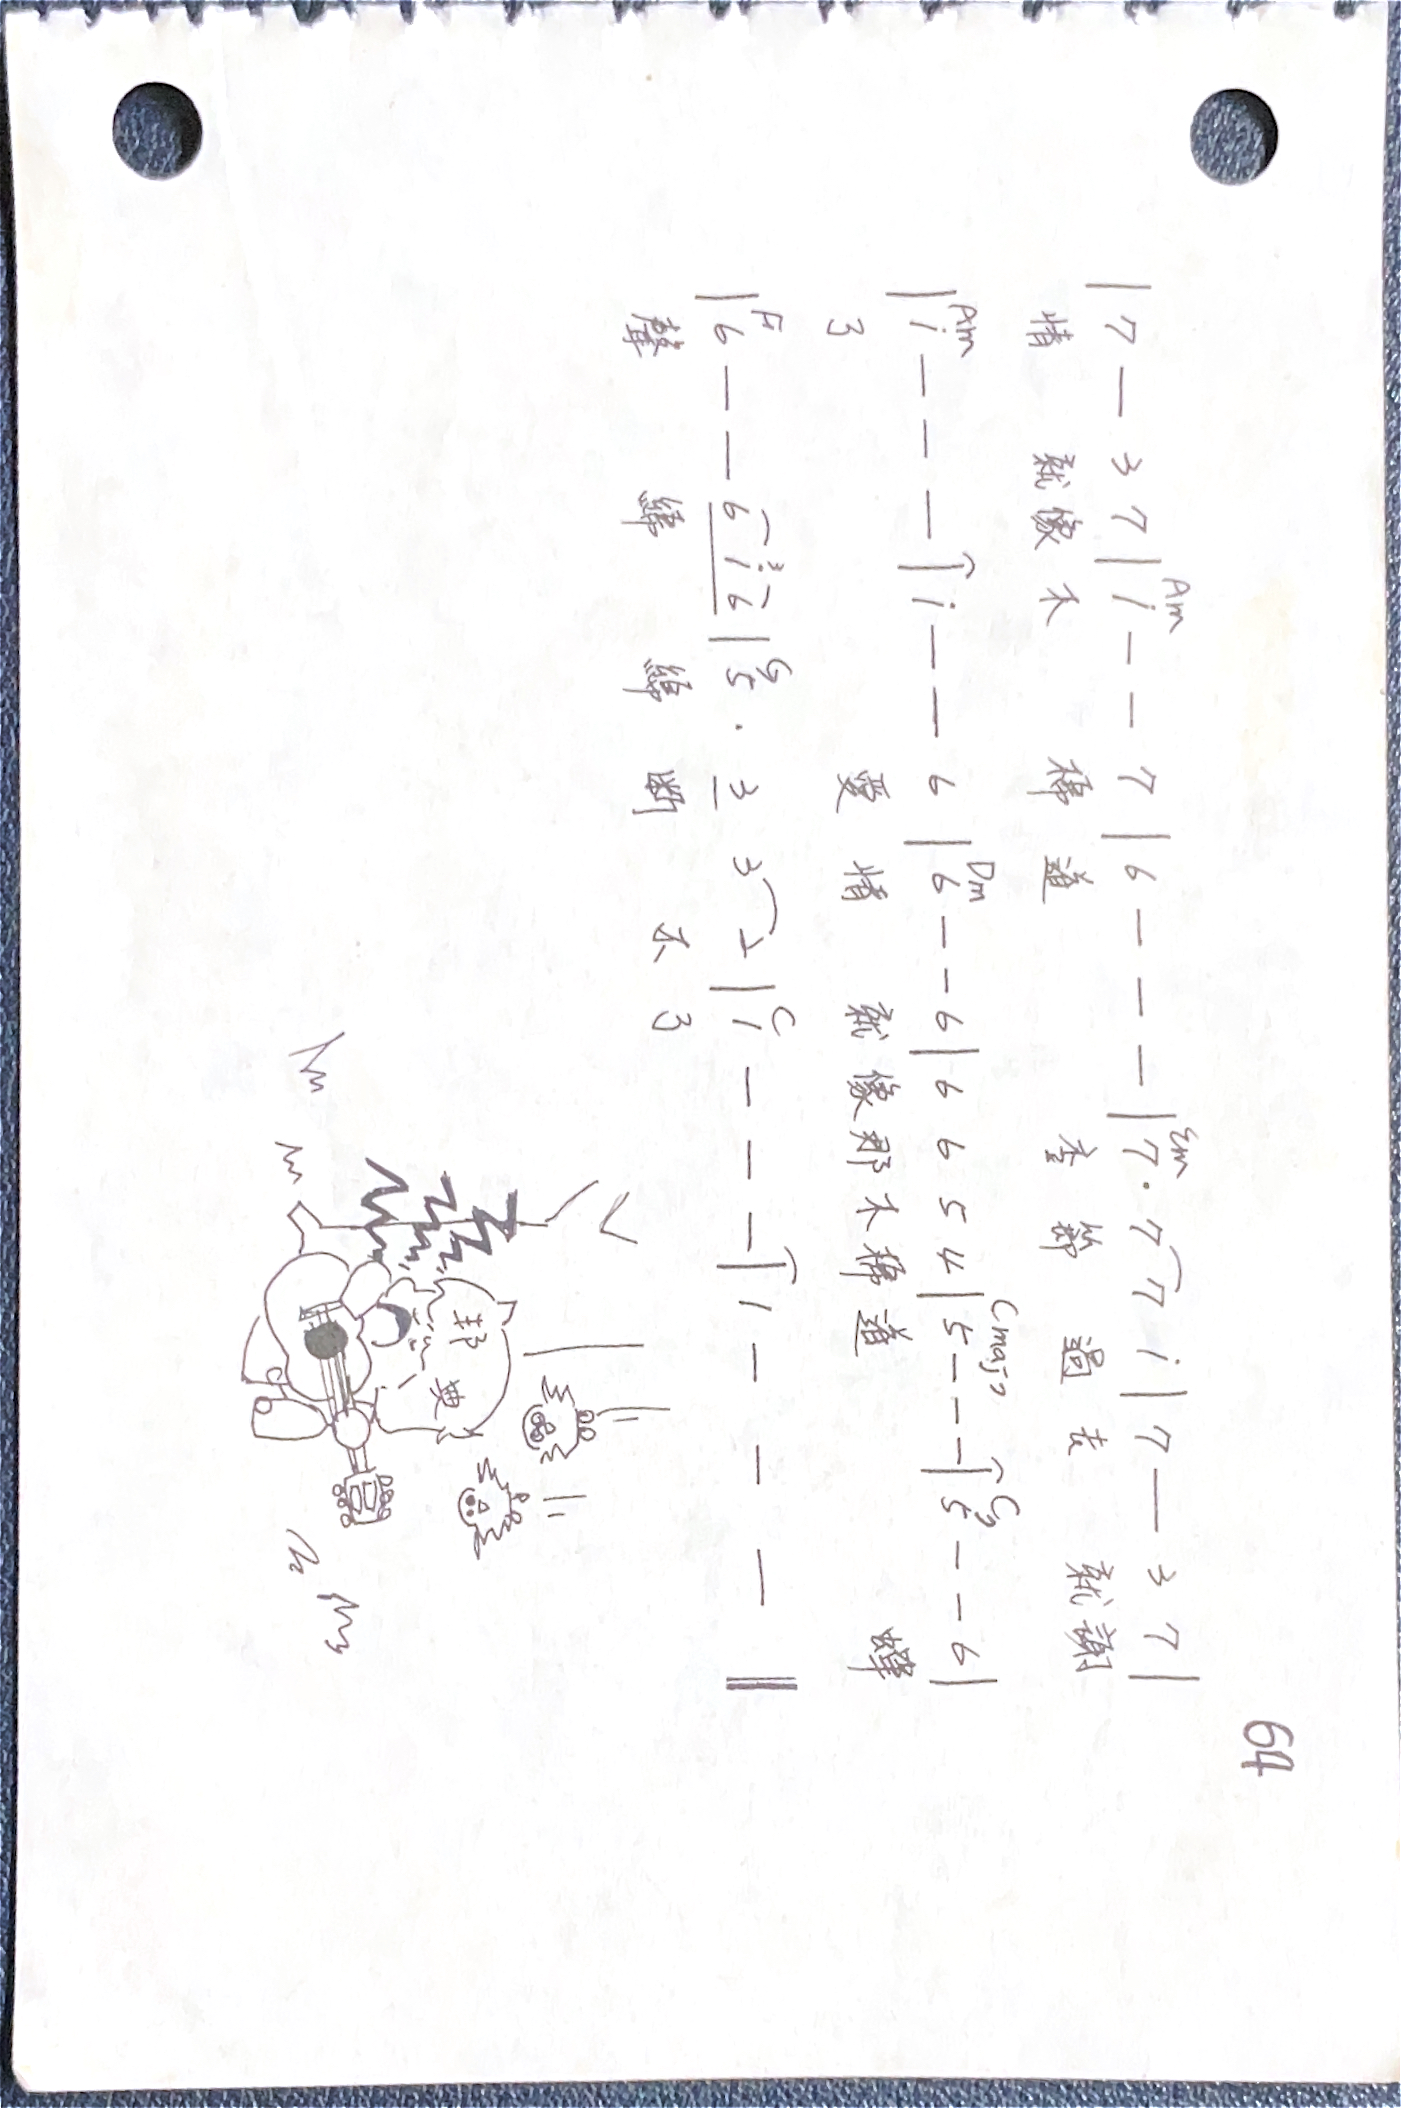 64
Am Em
| 7 — 3 7 | i — — 7 | 6 — — — | 7 · 7 7 i | 7 — 3 7 |
情 就像木 棉 道 季 節 過 去 就 謝
Am Dm Cmaj7 C7
| i — — — | i — — 6 | 6 — — 6 | 6 6 5 4 | 5 — — — | 5 — — 6 |
了 愛 情 就 像 那 木 棉 道 蟬
F 3 G C
| 6 — — 6 i 6 | 5 · 3 3 2 | 1 — — — | 1 — — — ||
聲 綿 綿 斷 不 了
邦 典